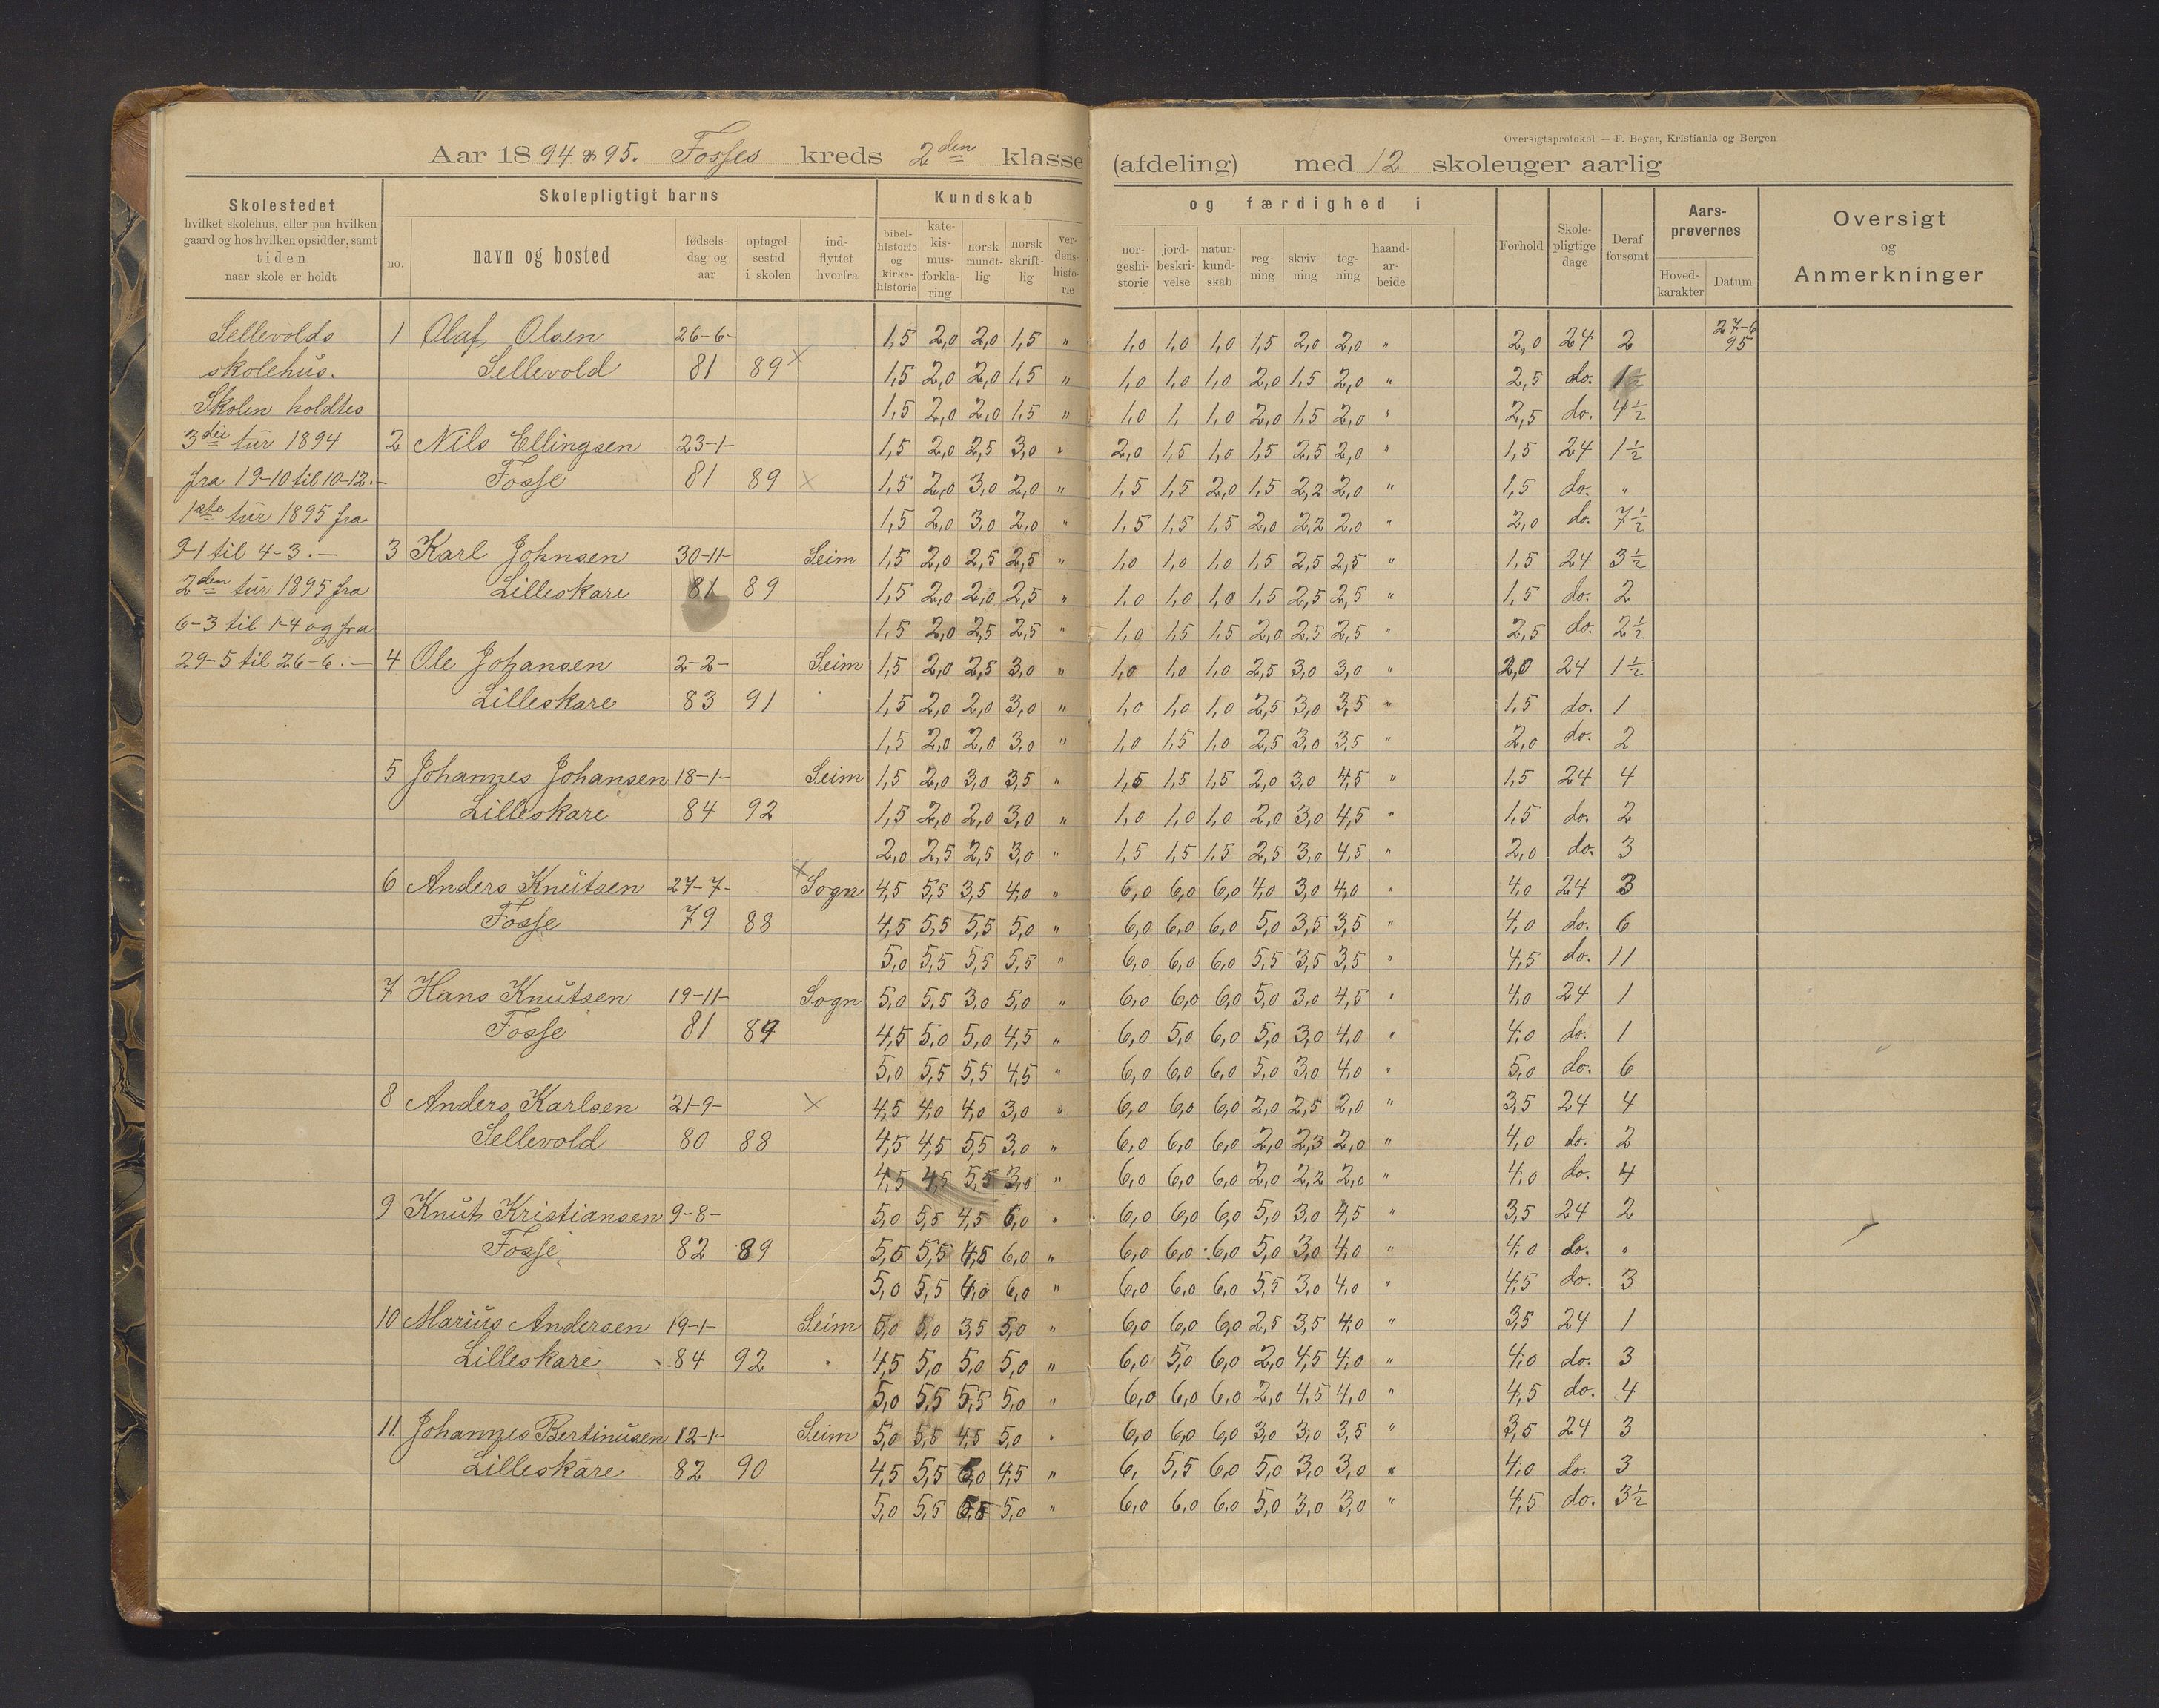 Oversigtsprotokol — F. Beyer, Kristiania og Bergen
Aar 1894 & 95. Fosses kreds 2den klasse (afdeling) med 12 skoleuger aarlig
Skolestedet
hvilket skolehus, eller paa hvilken
gaard og hos hvilken opsidder, samt
tiden
naar skole er holdt
Skolepligtigt barns
no.
navn og bosted
fødsels-
dag og
aar
optagel-
sestid
i skolen
ind-
flyttet
hvorfra
Kundskab og færdighed i
bibel-
historie
og
kirke-
historie
kate-
kis-
mus-
forkla-
ring
norsk
mundt-
lig
norsk
skrift-
lig
ver-
dens-
histo-
rie
nor-
geshi-
storie
jord-
beskri-
velse
natur-
kund-
skab
reg-
ning
skriv-
ning
teg-
ning
haand-
ar-
beide
Forhold
Skole-
pligtige
dage
Deraf
forsømt
Aars-
prøvernes
Hoved-
karakter
Datum
Oversigt
og
Anmerkninger
Sellevolds 1 Olaf Olsen 26-6- 1,5 2,0 2,0 1,5 " 1,0 1,0 1,0 1,5 2,0 2,0 " 2,0 24 2 27-6 95
skolehus. Sellevold 81 89 x 1,5 2,0 2,0 1,5 " 1,0 1,0 1,0 2,0 1,5 2,0 " 2,5 do. 1½
Skolen holdtes 1,5 2,0 2,0 1,5 " 1,0 1, 1,0 2,0 1,5 2,0 " 2,5 do. 4½
3die tur 1894 2 Nils Ellingsen 23-1- 1,5 2,0 2,5 3,0 " 2,0 1,5 1,0 1,5 2,5 2,0 " 1,5 24 1½
fra 19-10 til 10-12.- Fosse 81 89 x 1,5 2,0 3,0 2,0 " 1,5 1,5 2,0 1,5 2,2 2,0 " 1,5 do. "
1ste tur 1895 fra 1,5 2,0 3,0 2,0 " 1,5 1,5 1,5 2,0 2,2 2,0 " 2,0 do. 7½
9-1 til 4-3.- 3 Karl Johnsen 30-11- Seim 1,5 2,0 2,5 2,5 " 1,0 1,0 1,0 1,5 2,5 2,5 " 1,5 24 3½
2den tur 1895 fra Lilleskare 81 89 1,5 2,0 2,0 2,5 " 1,0 1,0 1,0 1,5 2,5 2,5 " 1,5 do. 2
6-3 til 1-4 og fra 1,5 2,0 2,5 2,5 " 1,0 1,5 1,5 2,0 2,5 2,5 " 2,5 do. 2½
29-5 til 26-6.- 4 Ole Johansen 2-2- Seim 1,5 2,0 2,5 3,0 " 1,0 1,0 1,0 2,5 3,0 3,0 " 2,0 24 1½
Lilleskare 83 91 1,5 2,0 2,0 3,0 " 1,0 1,0 1,0 2,5 3,0 3,5 " 1,5 do. 1
1,5 2,0 2,0 3,0 " 1,0 1,5 1,0 2,5 3,0 3,5 " 2,0 do. 2
5 Johannes Johansen 18-1- Seim 1,5 2,0 3,0 3,5 " 1,5 1,5 1,5 2,0 3,0 4,5 " 1,5 24 4
Lilleskare 84 92 1,5 2,0 2,0 3,0 " 1,0 1,0 1,0 2,0 3,0 4,5 " 1,5 do. 2
2,0 2,5 2,5 3,0 " 1,5 1,5 1,5 2,5 3,0 4,5 " 2,0 do. 3
6 Anders Knutsen 27-7- x Sogn 4,5 5,5 3,5 4,0 " 6,0 6,0 6,0 4,0 3,0 4,0 " 4,0 24 3
Fosse 79 88 4,5 5,5 5,5 5,0 " 6,0 6,0 6,0 5,0 3,5 3,5 " 4,0 do. 6
5,0 5,5 5,5 5,5 " 6,0 6,0 6,0 5,5 3,5 3,5 " 4,5 do. 11
7 Hans Knutsen 19-11- Sogn 5,0 5,5 3,0 5,0 " 6,0 6,0 6,0 5,0 3,0 4,5 " 4,0 24 1
Fosse 81 89 4,5 5,0 5,0 4,5 " 6,0 5,0 6,0 5,0 3,0 4,0 " 4,0 do. 1
5,0 5,5 5,5 4,5 " 6,0 6,0 6,0 5,0 3,0 4,0 " 5,0 do. 6
8 Anders Karlsen 21-9- x 4,5 4,0 4,0 3,0 " 6,0 6,0 6,0 2,0 2,5 2,0 " 3,5 24 4
Sellevold 80 88 4,5 4,5 5,5 3,0 " 6,0 6,0 6,0 2,0 2,3 2,0 " 4,0 do. 2
4,5 4,5 5,5 3,0 " 6,0 6,0 6,0 2,0 2,2 2,0 " 4,0 do. 4
9 Knut Kristiansen 9-8- 5,0 5,5 4,5 6,0 " 6,0 6,0 6,0 5,0 3,0 4,5 " 3,5 24 2
Fosse 82 89 5,5 5,5 4,5 6,0 " 6,0 6,0 6,0 5,0 3,0 4,0 " 4,0 do. "
5,0 5,5 4,0 6,0 " 6,0 6,0 6,0 5,5 3,0 4,0 " 4,5 do. 3
10 Marius Andersen 19-1- Seim 5,0 5,0 3,5 5,0 " 6,0 6,0 6,0 2,5 3,5 4,0 " 3,5 24 1
Lilleskare 84 92 4,5 5,0 5,0 5,0 " 6,0 5,0 6,0 2,0 4,5 4,0 " 4,0 do. 3
5,0 5,5 5,5 5,0 " 6,0 6,0 6,0 2,0 4,5 4,0 " 4,5 do. 4
11 Johannes Bertinusen 12-1- Seim 5,0 5,5 4,5 5,0 " 6,0 6,0 6,0 3,0 3,0 3,5 " 3,5 24 3
Lilleskare 82 90 4,5 5,5 5,0 4,5 " 6, 5,5 6,0 5,0 3,0 3,0 " 4,0 do. 3
5,0 5,5 5,5 5,0 " 6,0 6,0 6,0 5,0 3,0 3,0 " 4,5 do. 3½